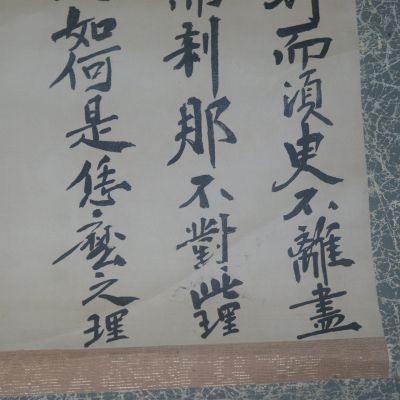 而須臾不離盡
而刹那不對此理
如何是恁麼之理